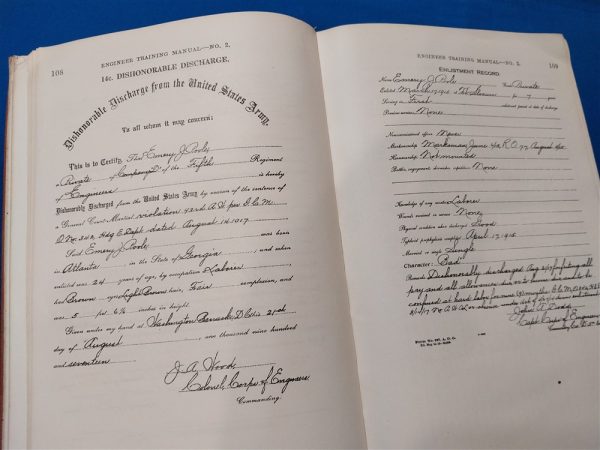 108
ENGINEER TRAINING MANUAL—NO. 2.
14c. DISHONORABLE DISCHARGE.
Dishonorable Discharge from the United States Army.
To all whom it may concern:
This is to Certify, That Emery J. Poole,
a Private of Company D of the Fifth Regiment
of Engineers is hereby
Dishonorably Discharged from the United States Army by reason of the sentence of
a General Court-Martial violation 43rd A.W. per G.C.M.
O. No. Hdq E. Dept. dated August 1st 1917
Said Emery J. Poole was born
in Atlanta in the State of Georgia, and when
enlisted was 24 years of age, by occupation a Laborer
had Brown eyes, Light Brown hair, Fair complexion, and
was 5 feet 6¾ inches in height.
Given under my hand at Washington Barracks, D.C. this 21st
day of August, one thousand nine hundred
and seventeen
J. A. Woods
Colonel, Corps of Engineers
Commanding.
ENGINEER TRAINING MANUAL—NO. 2.
109
ENLISTMENT RECORD.
Name: Emery J. Poole Grade: Private
Enlisted March 17, 1915 at for 7 years
Serving in First enlistment period at date of discharge
Previous service: None
Noncommissioned officer: Never
Marksmanship: Marksman, June R.O. 72 August
Horsemanship: Not mounted
Battles, engagements, skirmishes, expeditions: None
Knowledge of any vocation: Laborer
Wounds received in service: None
Physical condition when discharged: Good
Typhoid prophylaxis completed April 17, 1915
Married or single: Single
Character: Bad
Remarks: Dishonorably discharged Aug forfeiting all
pay and all allowances due or to become due to be
confined at hard labor for nine
Capt Corps of Engineers